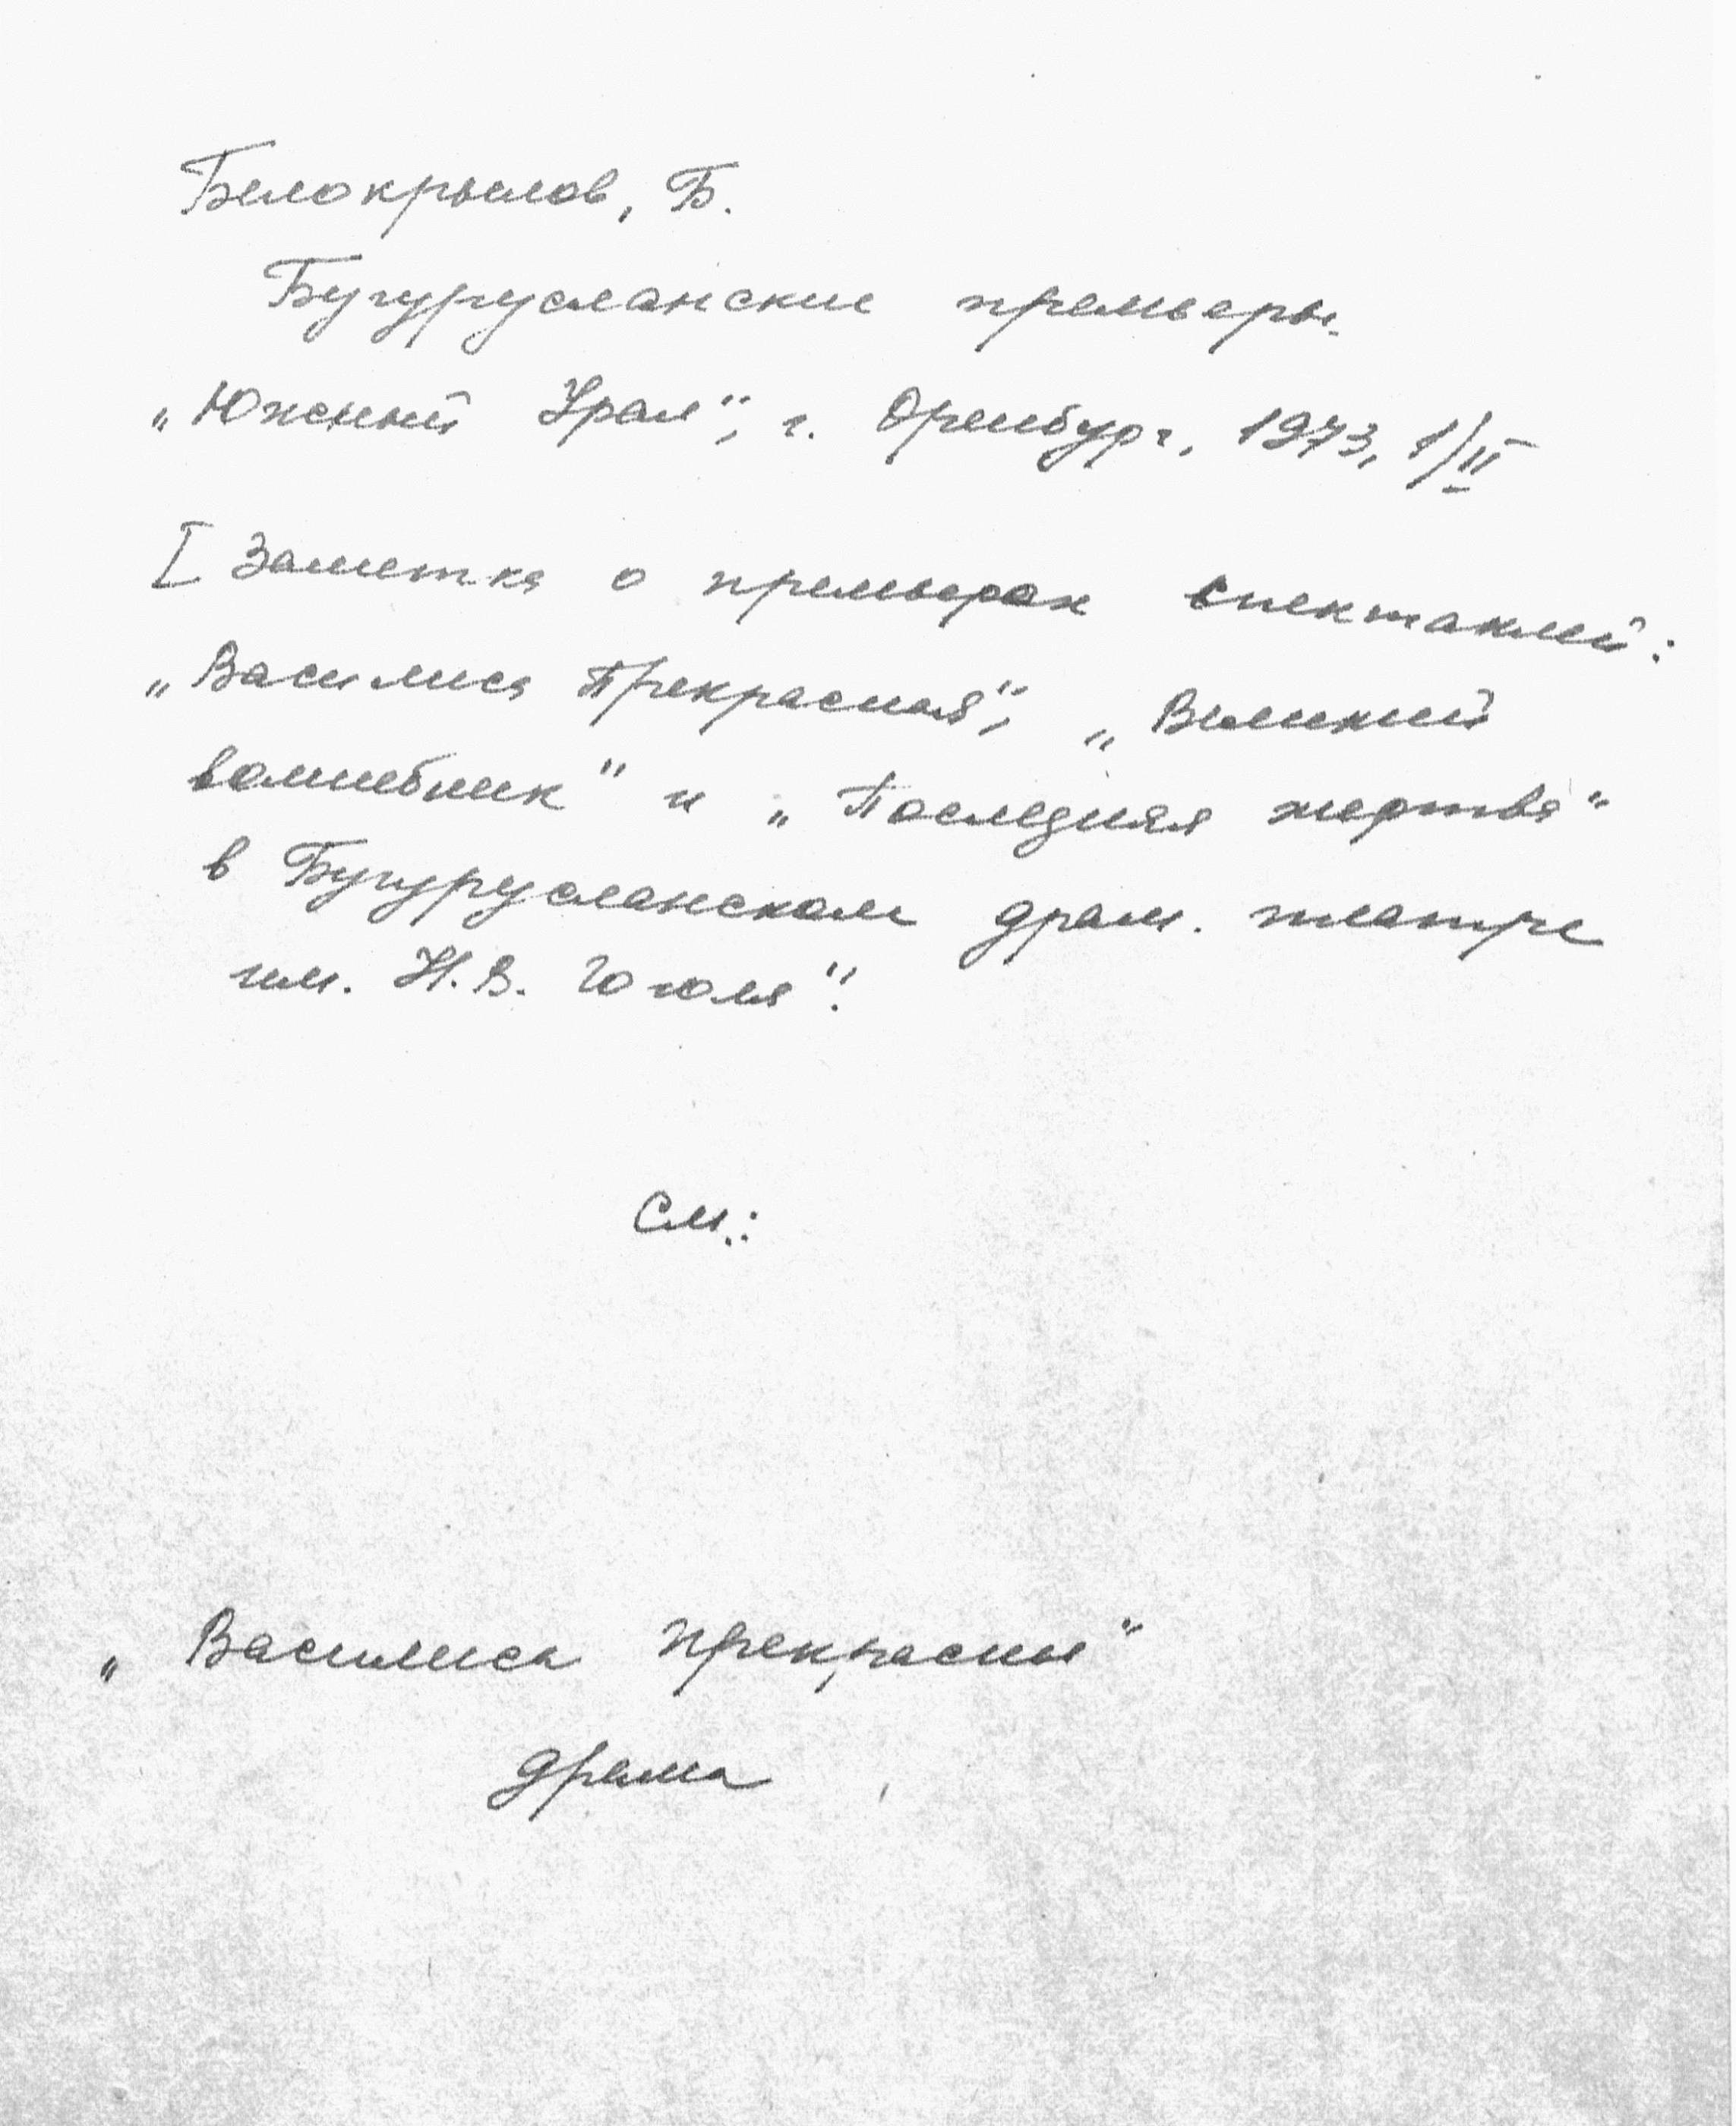 Белокрылов, Б.
Бугурусланские премьеры.
„Южный Урал", г. Оренбург, 1973, 1/II
[Заметка о премьерах спектаклей:
„Василиса Прекрасная", „Великий
волшебник" и „Последняя жертва"
в Бугурусланском драм. театре
им. Н.В. Гоголя".
См.:
„Василиса прекрасная"
драма